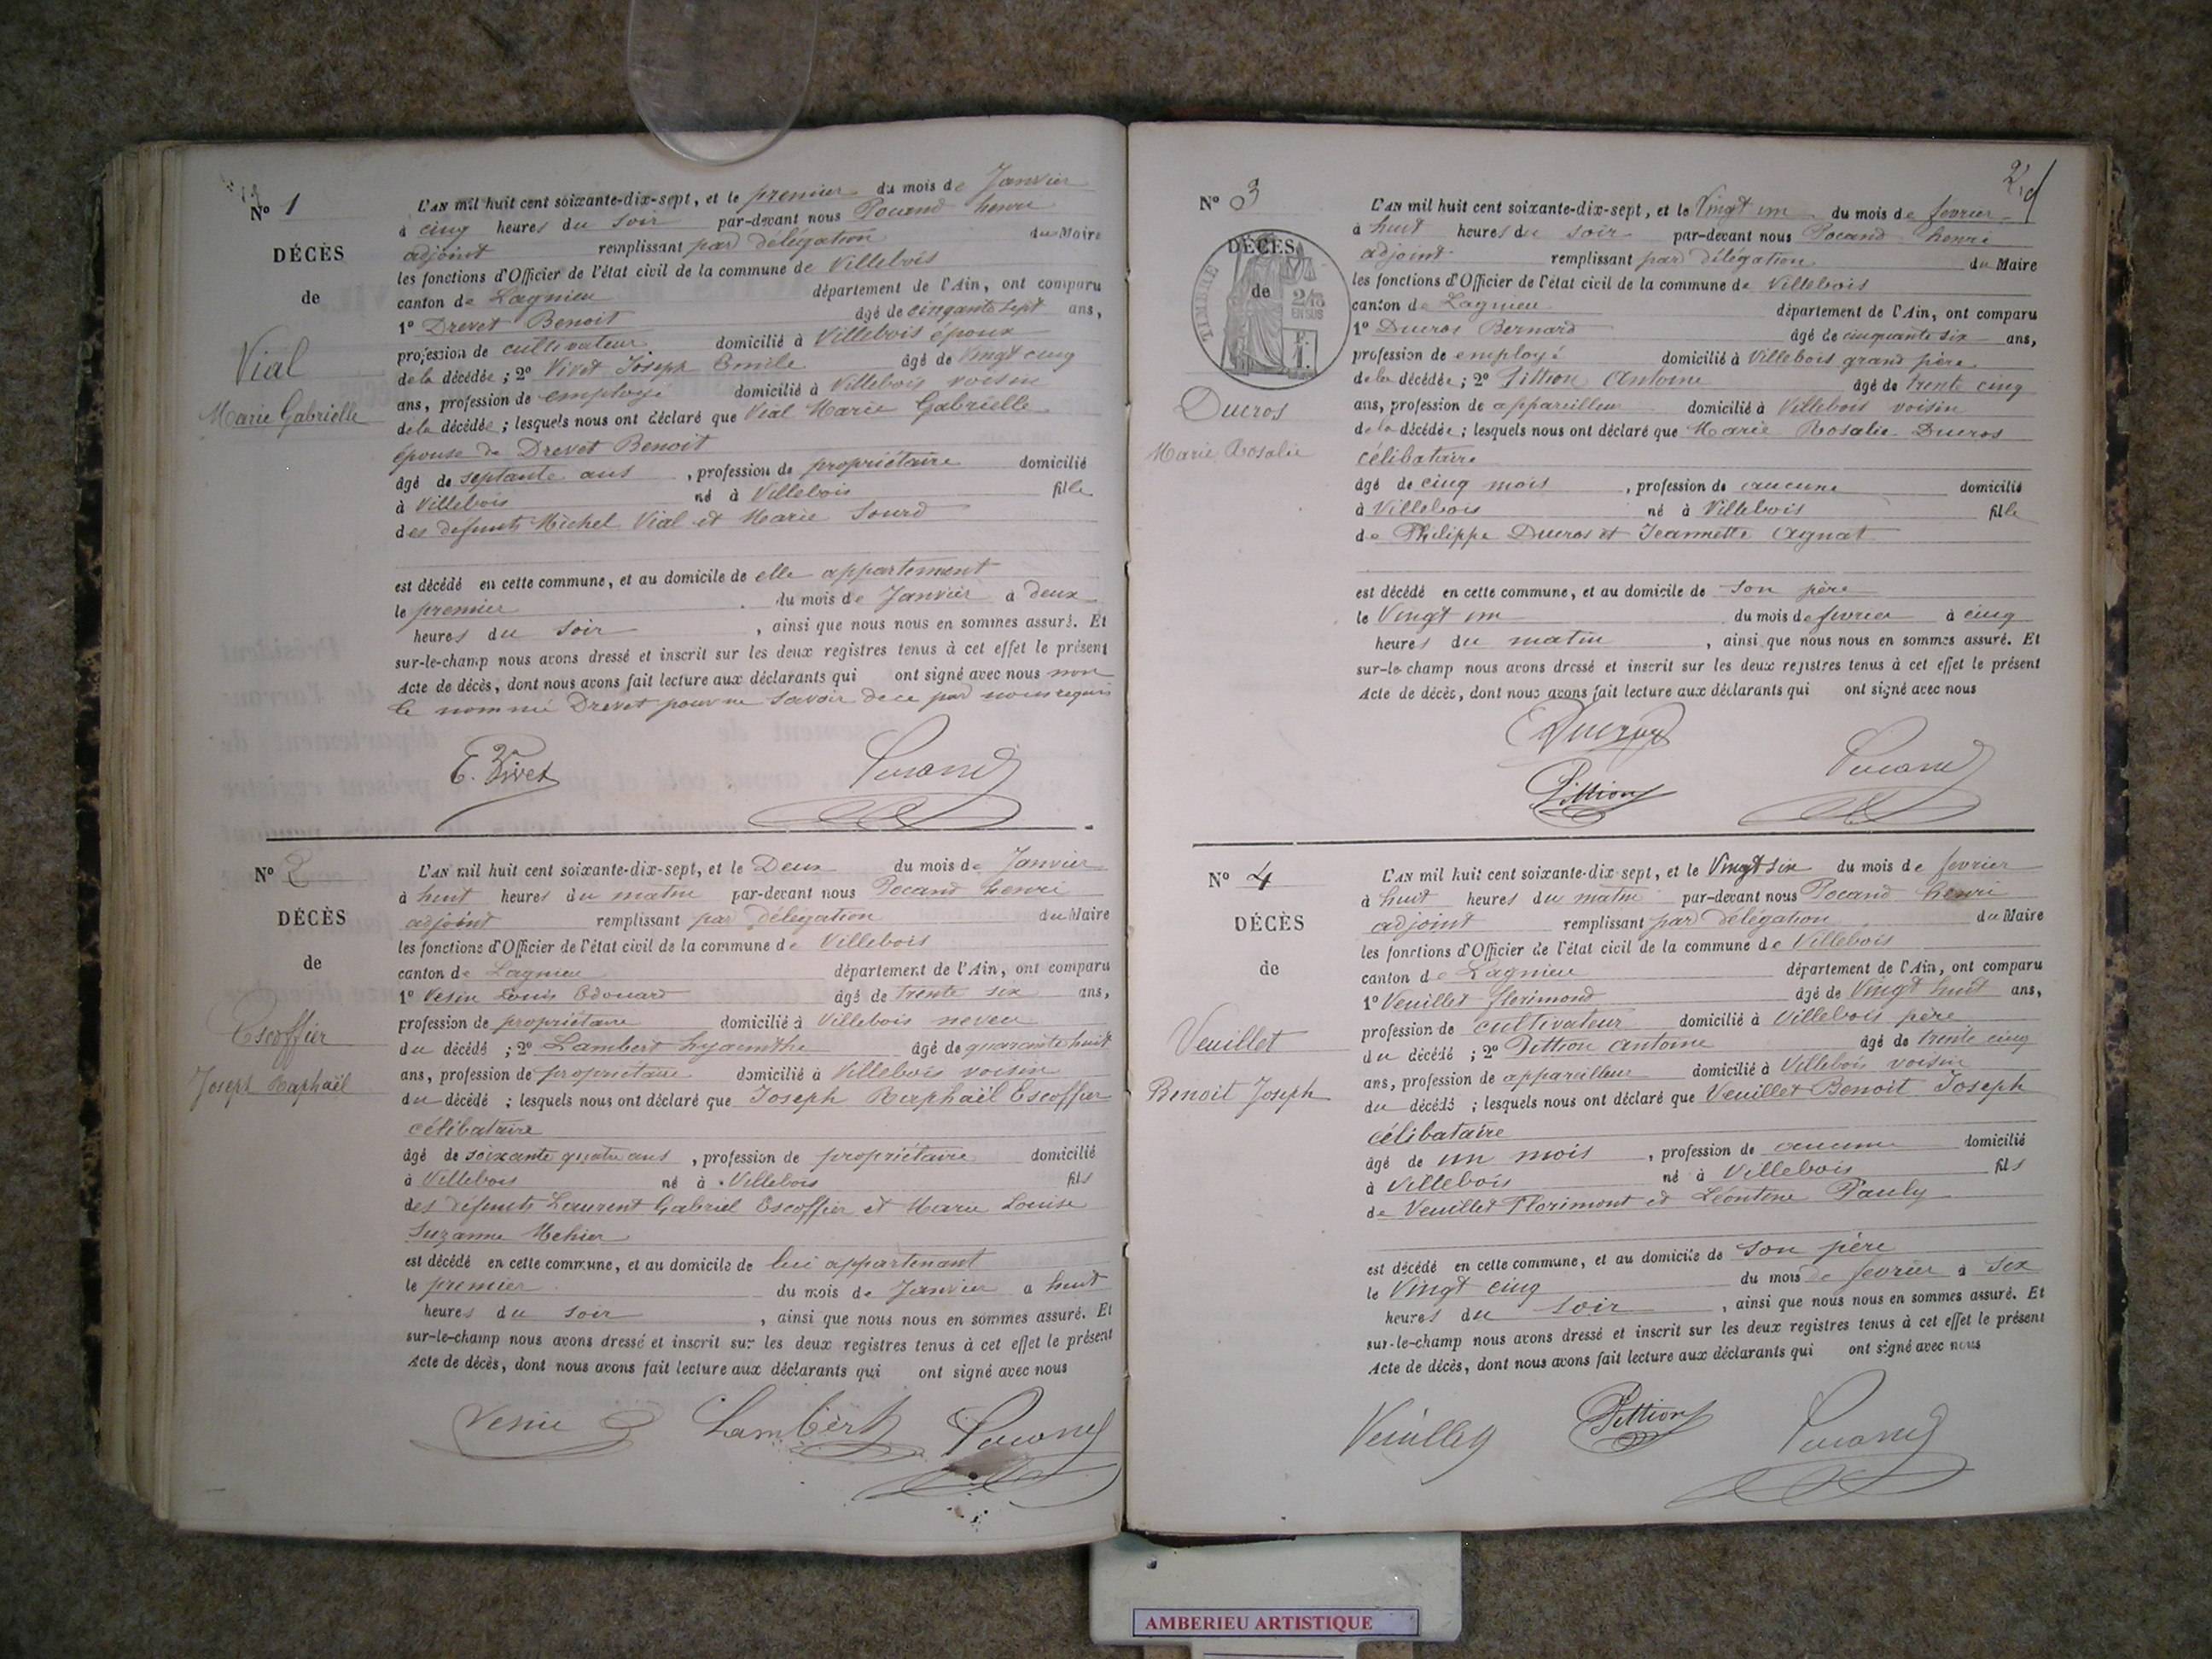 N° 1
DÉCÈS
de
Vial
Marie Gabrielle
L'AN mil huit cent soixante-dix-sept, et le premier du mois de Janvier
à cinq heures du soir par-devant nous Pocand henri
adjoint remplissant par délégation du Maire
les fonctions d'Officier de l'état civil de la commune de Villebois
canton de Lagnieu département de l'Ain, ont comparu
1° Drevet Benoit âgé de cinqante sept ans,
profession de cultivateur domicilié à Villebois époux
de la décédée ; 2° Vivet Joseph Emile âgé de vingt cinq
ans, profession de employé domicilié à Villebois voisin
de la décédée ; lesquels nous ont déclaré que Vial Marie Gabrielle
épouse de Drevet Benoit
âgé de septante ans , profession de propriétaire domicilié
à Villebois né à Villebois fille
des défunts Michel Vial et Marie Sourd
est décédé en cette commune, et au domicile de elle appartement
le premier du mois de Janvier à deux
heures du soir , ainsi que nous nous en sommes assuré. Et
sur-le-champ nous avons dressé et inscrit sur les deux registres tenus à cet effet le présent
Acte de décès, dont nous avons fait lecture aux déclarants qui ont signé avec nous non
le nommé Drevet pour ne savoir de ce par nous requis
E. Vivet Pocand
N° 2
DÉCÈS
de
Escoffier
Joseph Raphaël
L'AN mil huit cent soixante-dix-sept, et le Deux du mois de Janvier
à huit heures du matin par-devant nous Pocand henri
adjoint remplissant par délégation du Maire
les fonctions d'Officier de l'état civil de la commune de Villebois
canton de Lagnieu département de l'Ain, ont comparu
1° Vesin Louis Edouard âgé de trente six ans,
profession de propriétaire domicilié à Villebois neveu
du décédé ; 2° Lambert hyacinthe âgé de quarante huit
ans, profession de propriétaire domicilié à Villebois voisin
du décédé ; lesquels nous ont déclaré que Joseph Raphaël Escoffier
célibataire
âgé de soixante quatre ans , profession de propriétaire domicilié
à Villebois né à Villebois fils
des défunts Laurent Gabriel Escoffier et Marie Louise
Suzanne Mehier
est décédé en cette commune, et au domicile de lui appartenant
le premier du mois de Janvier a huit
heures du soir , ainsi que nous nous en sommes assuré. Et
sur-le-champ nous avons dressé et inscrit sur les deux registres tenus à cet effet le présent
Acte de décès, dont nous avons fait lecture aux déclarants qui ont signé avec nous
Lambert Pocand
N° 3
DÉCÈS
de
TIMBRE
2/10
EN SUS
Ducros
Marie Rosalie
L'AN mil huit cent soixante-dix-sept, et le Vingt un du mois de fevrier
à huit heures du soir par-devant nous Pocand henri
adjoint remplissant par délégation du Maire
les fonctions d'Officier de l'état civil de la commune de Villebois
canton de Lagnieu département de l'Ain, ont comparu
1° Ducros Bernard âgé de cinquante six ans,
profession de employé domicilié à Villebois grand père
de la décédée ; 2° Pittion Antoine âgé de trente cinq
ans, profession de appareilleur domicilié à Villebois voisin
de la décédée ; lesquels nous ont déclaré que Marie Rosalie Ducros
célibataire
âgé de cinq mois , profession de aucune domicilié
à Villebois né à Villebois fille
de Philippe Ducros et Jeannette Agnat
est décédé en cette commune, et au domicile de son père
le Vingt un du mois de fevrier à cinq
heures du matin , ainsi que nous nous en sommes assuré. Et
sur-le-champ nous avons dressé et inscrit sur les deux registres tenus à cet effet le présent
Acte de décès, dont nous avons fait lecture aux déclarants qui ont signé avec nous
Ducros
Pittion Pocand
N° 4
DÉCÈS
de
Veuillet
Benoit Joseph
L'AN mil huit cent soixante-dix-sept, et le Vingt six du mois de fevrier
à huit heures du matin par-devant nous Pocand henri
adjoint remplissant par délégation du Maire
les fonctions d'Officier de l'état civil de la commune de Villebois
canton de Lagnieu département de l'Ain, ont comparu
1° Veuillet florimond âgé de Vingt huit ans,
profession de cultivateur domicilié à Villebois père
du décédé ; 2° Pittion Antoine âgé de trente cinq
ans, profession de appareilleur domicilié à Villebois voisin
du décédé ; lesquels nous ont déclaré que Veuillet Benoit Joseph
célibataire
âgé de un mois , profession de aucune domicilié
à Villebois né à Villebois fils
de Veuillet Florimont et Léontine Pauly
est décédé en cette commune, et au domicile de son père
le Vingt cinq du mois de fevrier à six
heures du soir , ainsi que nous nous en sommes assuré. Et
sur-le-champ nous avons dressé et inscrit sur les deux registres tenus à cet effet le présent
Acte de décès, dont nous avons fait lecture aux déclarants qui ont signé avec nous
Veuillet Pittion Pocand
AMBERIEU ARTISTIQUE